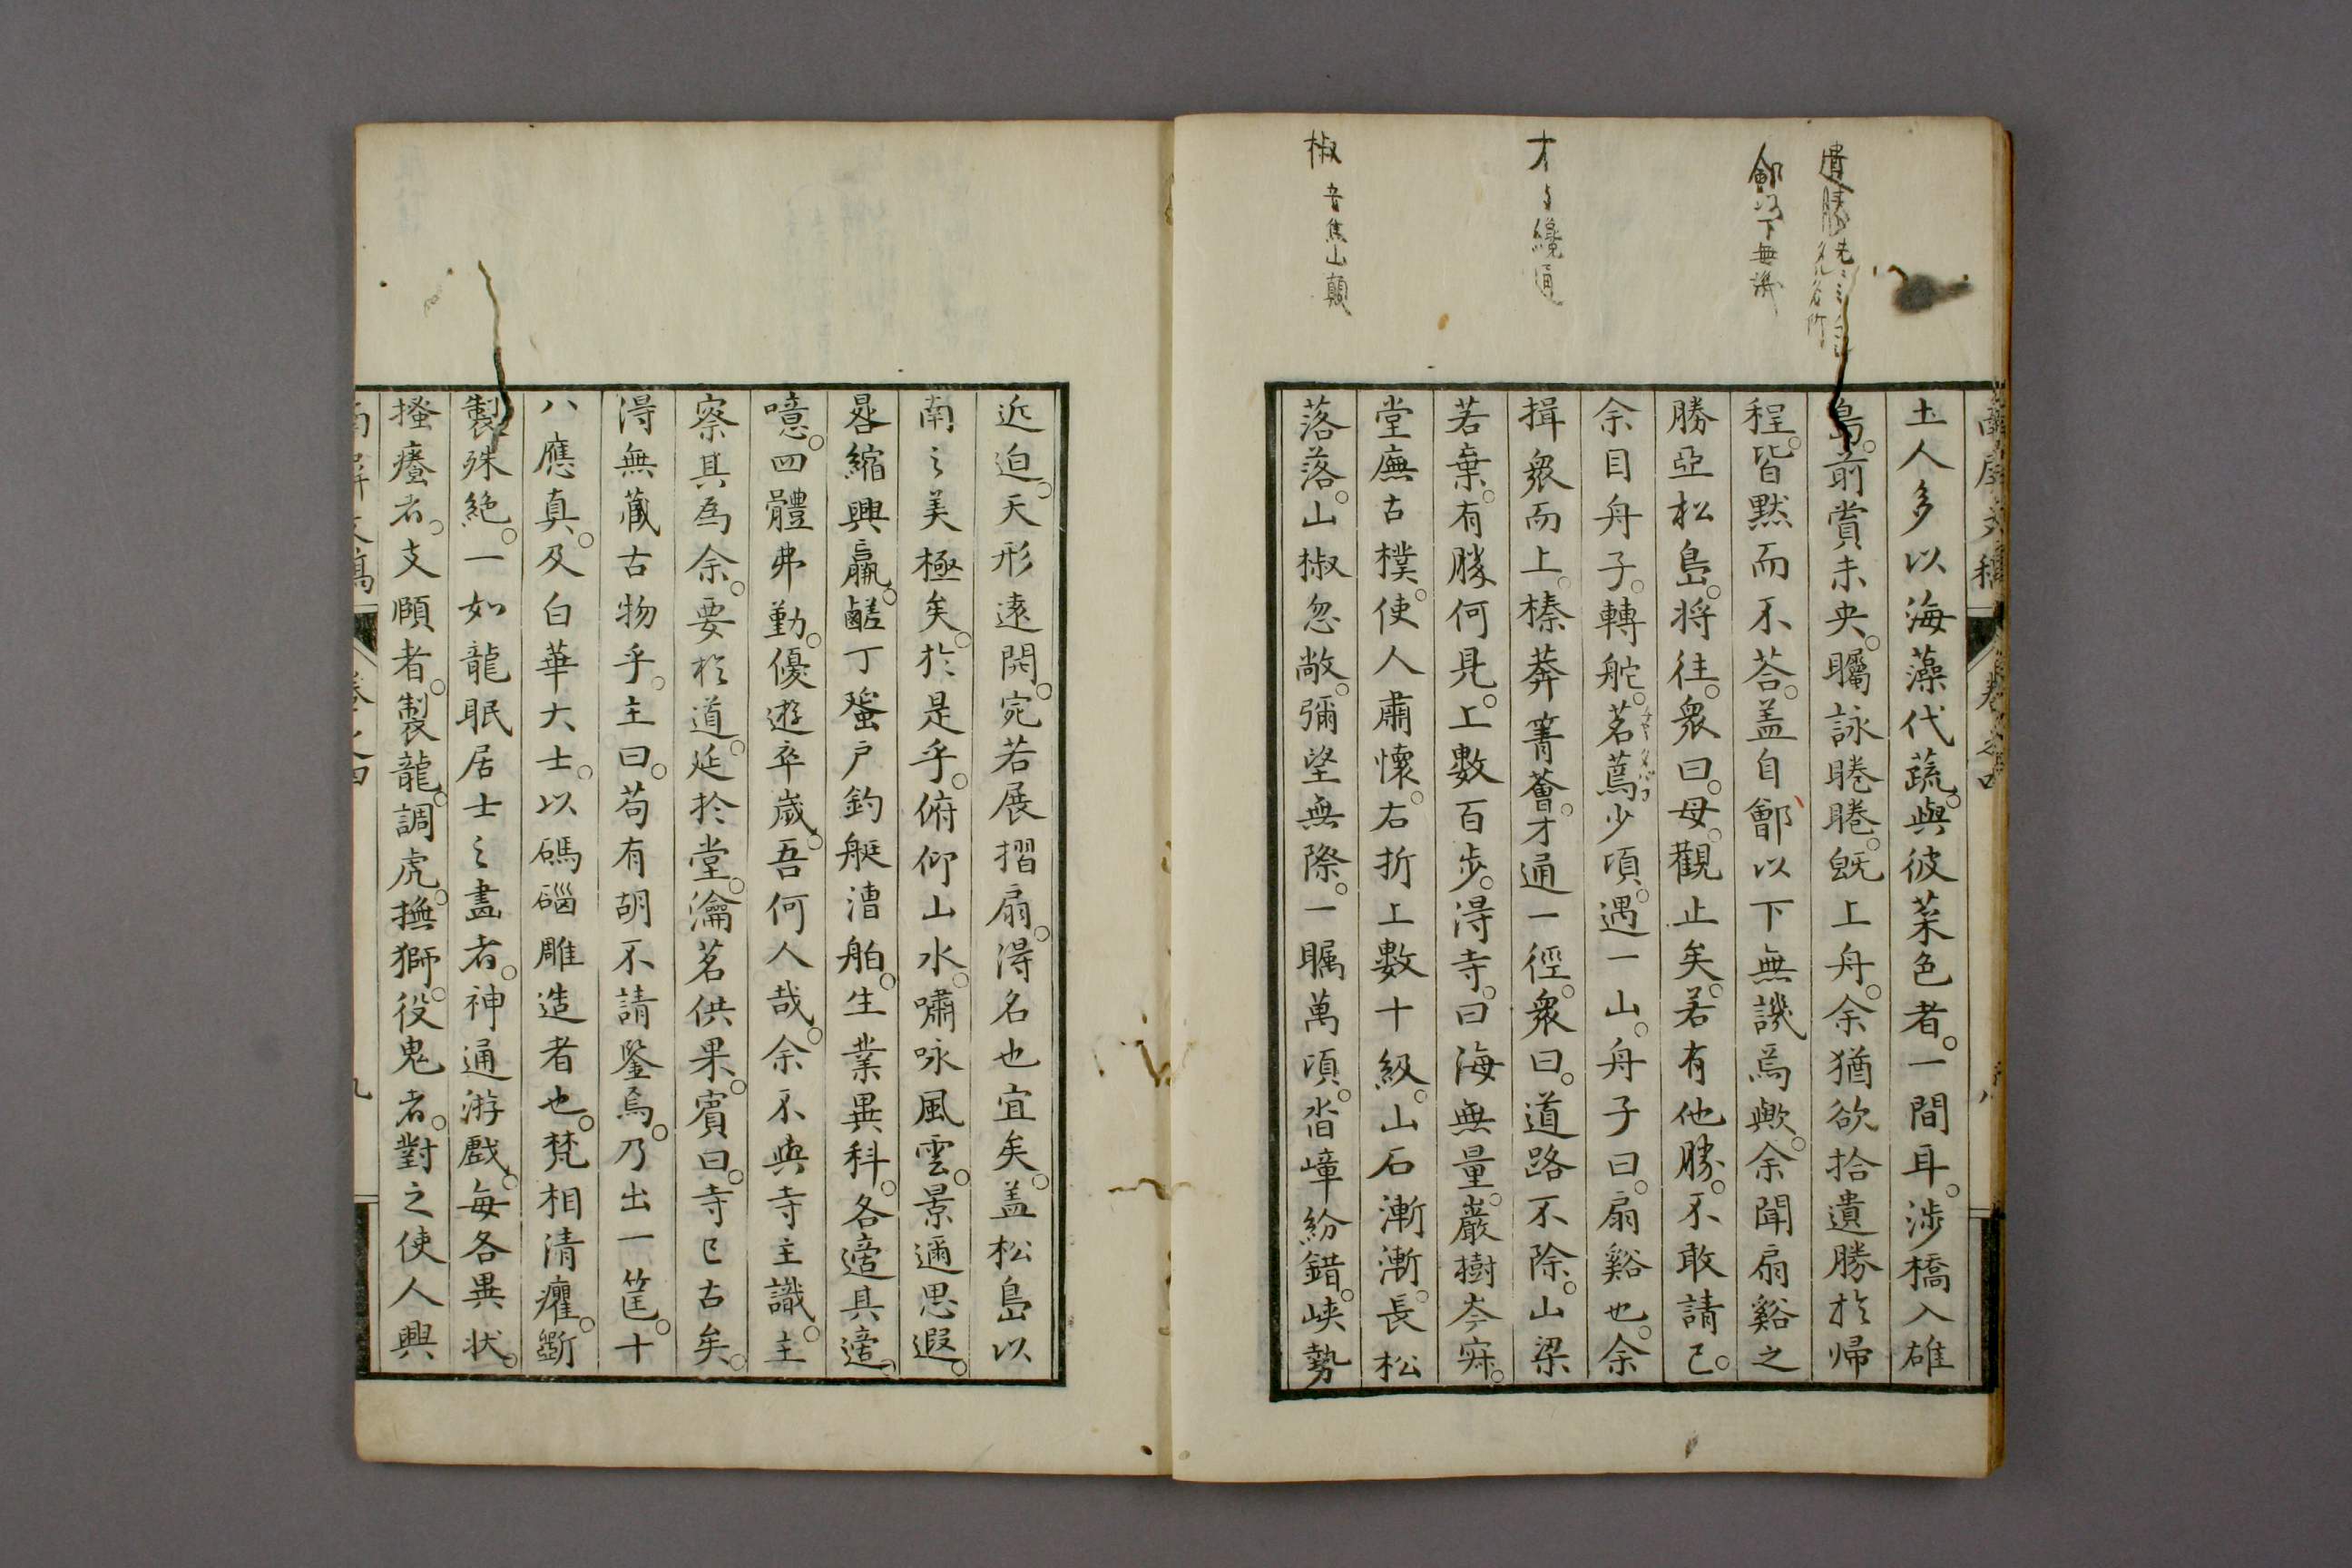 遺勝
鄶以下無譏
才与纔通
椒音焦山顛
土人多以海藻代蔬。與彼菜色者。一間耳。涉橋入雄
島。前賞未央。矚詠睠睠。既上舟。余猶欲拾遺勝於歸
程。皆黙而不荅。盖自鄶以下無譏焉歟。余聞扇谿之
勝亞松島。将往。衆曰。母。觀止矣。若有他勝。不敢請己。
余目舟子。轉舵。茗蔫少頃。遇一山。舟子曰。扇谿也。余
揖衆而上。榛莽菁薈。才通一徑。衆曰。道路不除。山梁
若棄。有勝何見。上數百步。得寺。曰海無量。巖樹岑寂。
堂廡古樸。使人肅懷。右折上數十級。山石漸漸。長松
落落。山椒忽敞。彌望無際。一瞩萬頃。沓嶂紛錯。峡勢
近迫。天形遠開。宛若展摺扇。得名也宜矣。盖松島以
南之美極矣。於是乎。俯仰山水。嘯咏風雲。景邇思遐。
晷縮興羸。鹺丁蜑戶釣艇漕舶。生業異科。各適其適。
噫。四體弗勤。優遊卒嵗。吾何人哉。余不與寺主識。主
察其爲余。要於道。延於堂。瀹茗供果。賓曰。寺已古矣。
得無蔵古物乎。主曰。苟有胡不請鑒焉。乃出一筐。十
八應真。及白華大士。以碼碯雕造者也。梵相清癯。斲
製殊絶。一如龍眠居士之畫者。神通游戲。每各異状。
搔癢者。支頤者。製龍。調虎。撫獅。役鬼者。對之使人興
卷之四
九